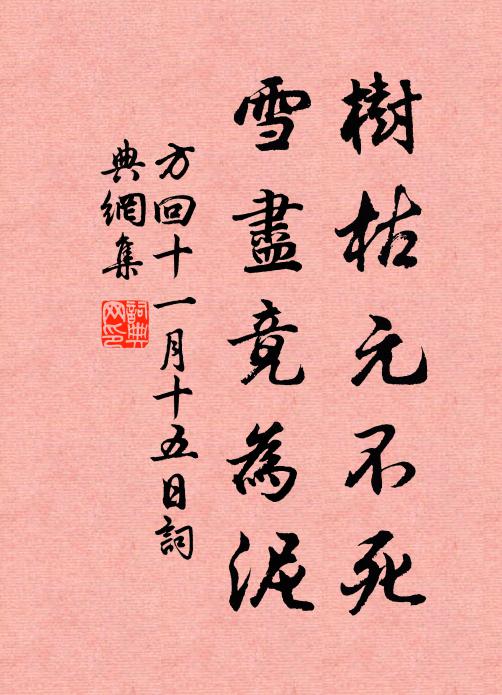 樹枯元不死
雪盡竟為泥
方回十一月十五日詞
典網集
詞典
网印